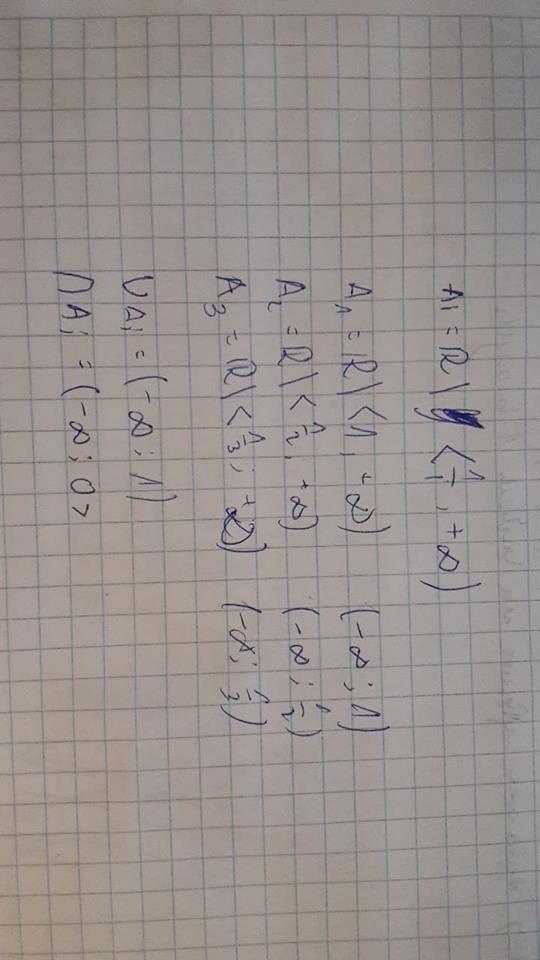 Ai = ℝ \ <1/i, +∞)
A₁ = ℝ \ <1, +∞) (-∞; 1)
A₂ = ℝ \ <1/2, +∞) (-∞; 1/2)
A₃ = ℝ \ <1/3; +∞) (-∞; 1/3)
∪Ai = (-∞; 1)
∩Ai = (-∞; 0>